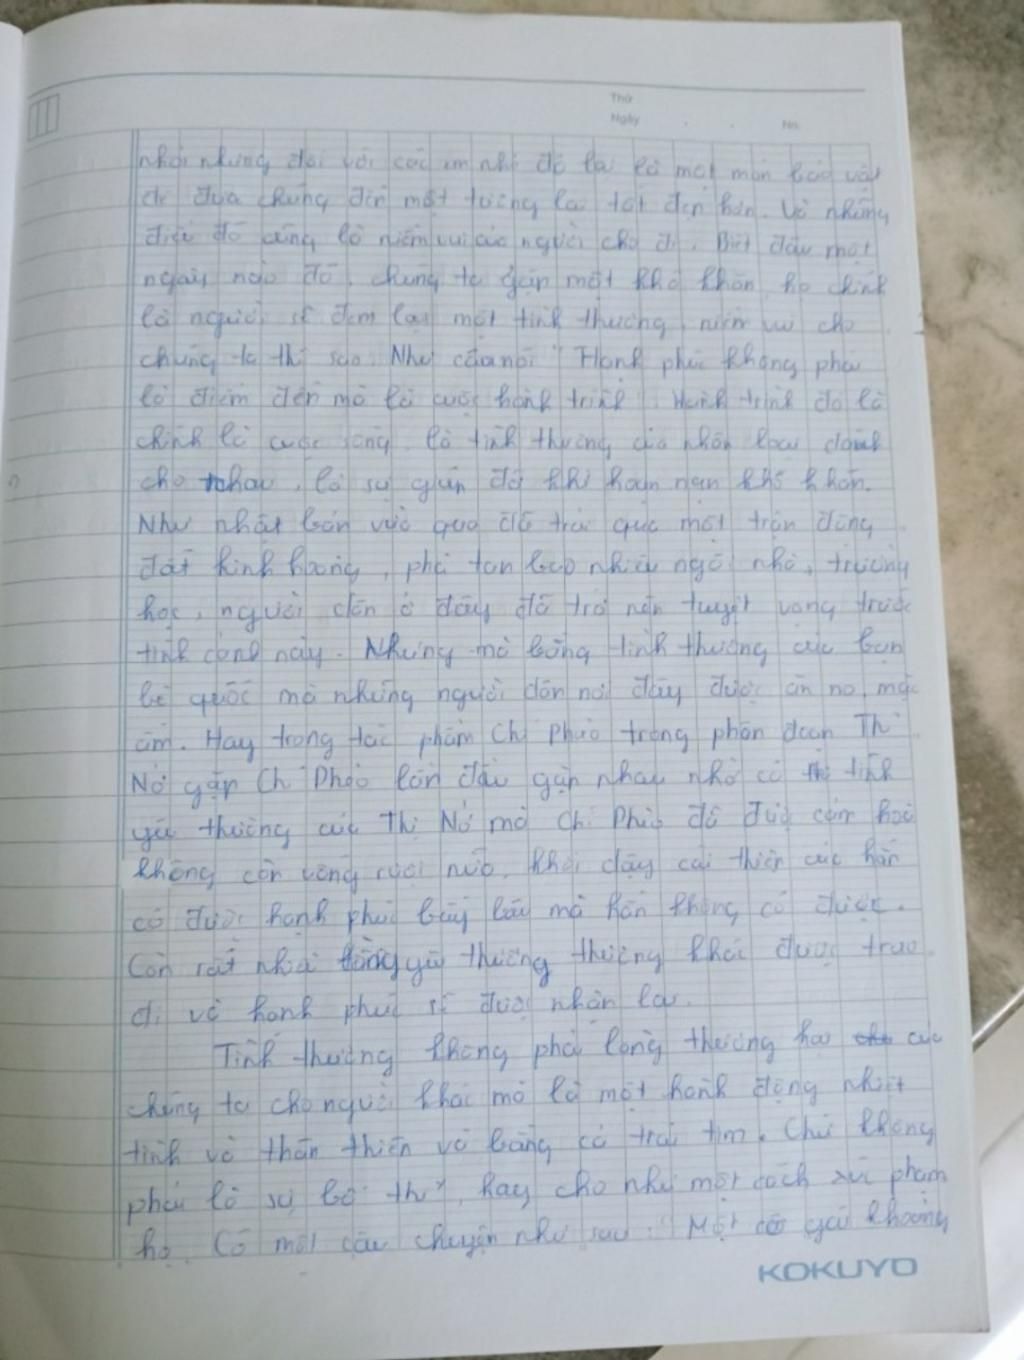 Thứ
Ngày . . No.
nhỏi nhưng đối với các em nhỏ đó lại là một món báu vật
để đưa chúng đến một tương lai tốt đẹp hơn. Và những
điều đó cũng là niềm vui của người cho đi. Biết đâu một
ngày nào đó, chúng ta gặp một khó khăn, họ chính
là người sẽ đem lại một tình thương, niềm vui cho
chúng ta thì sao. Như câu nói "Hạnh phúc không phải
là điểm đến mà là cuộc hành trình". Hành trình đó là
chính là cuộc sống, là tình thương của nhân loại dành
cho nhau, là sự giúp đỡ khi hoạn nạn khó khăn.
Như nhật bản vừa qua đã trải qua một trận động
đất kinh hoàng, phá tan bao nhiêu ngôi nhà, trường
học, người dân ở đây đã trở nên tuyệt vọng trước
tình cảnh này. Nhưng mà bằng tình thương của bạn
bè quốc mà những người dân nơi đây được ăn no, mặc
ấm. Hay trong tác phẩm Chí Phèo trong phân đoạn Thị
Nở gặp Chí Phèo lần đầu gặp nhau nhờ có tình
yêu thương của Thị Nở mà Chí Phèo đã được cảm hoá
không còn uống rượu nữa, khơi dậy cái thiện của hắn
có được hạnh phúc bấy lâu mà hắn không có được.
Còn rất nhiều yêu thương thương khác được trao
đi và hạnh phúc sẽ được nhận lại.
Tình thương không phải lòng thương hại của
chúng ta cho người khác mà là một hành động nhiệt
tình và thân thiện và bằng cả trái tim. Chứ không
phải là sự bố thí, hay cho như một cách xúc phạm
họ. Có một câu chuyện như sau: "Một cô gái khoảng
KOKUYO